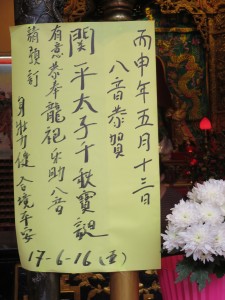 丙申年五月十三日
八音恭賀
関平太子千秋寶誕
有意恭奉龍袍乐助八音
請預訂
身壮力健 合境平安
17-6-16(五)